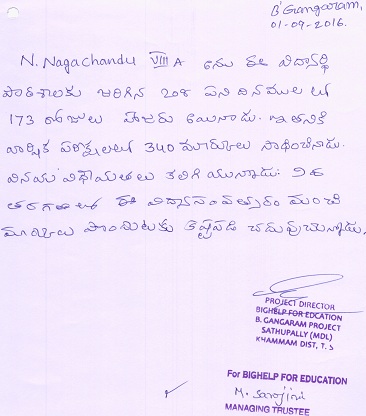 B'Gangaram,
01-09-2016.
N. Nagachandu VIII A అను ఈ విద్యార్థి
పాఠశాలకు జరిగిన 208 పని దినముల లో
173 రోజులు హాజరు అయినాడు. ఇతనికి
వార్షిక పరీక్షలలో 340 మార్కులు సాధించినాడు.
వినయ విధేయతలు కలిగి యున్నాడు. 9వ
తరగతిలో ఈ విద్యాసంవత్సరం మంచి
మార్కులు పొందుటకు కష్టపడి చదువుచున్నాడు.
PROJECT DIRECTOR
BIGHELP FOR EDCATION
B. GANGARAM PROJECT
SATHUPALLY (MDL)
KHAMMAM DIST, T. S
For BIGHELP FOR EDUCATION
M. Sarojini
MANAGING TRUSTEE